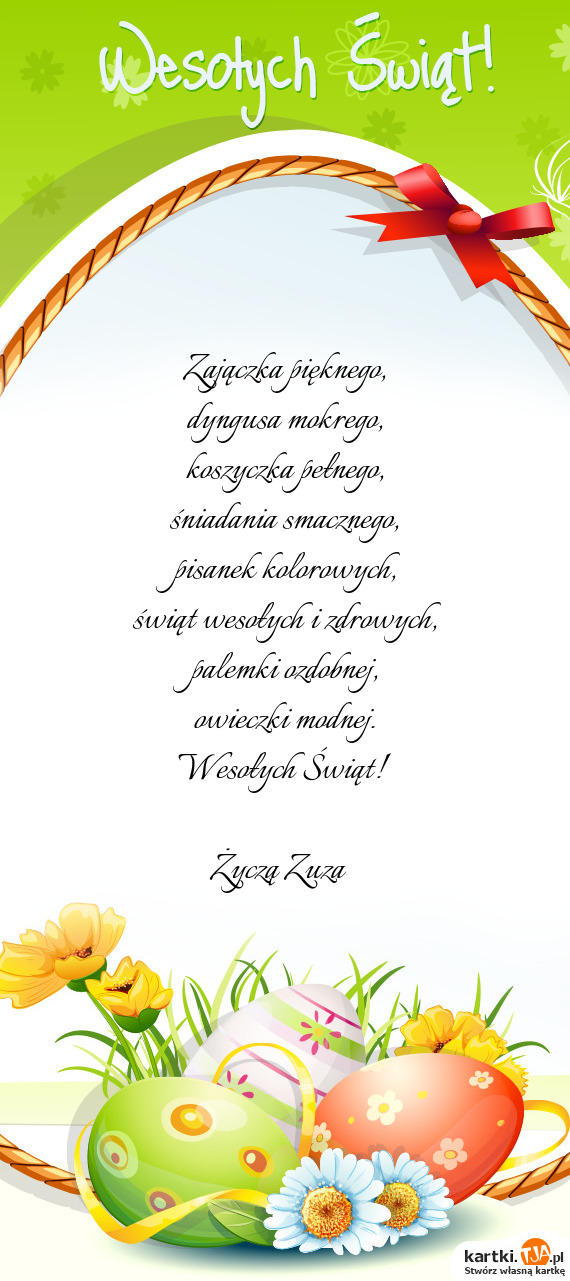 Wesołych Świąt!
Zajączka pięknego,
dyngusa mokrego,
koszyczka pełnego,
śniadania smacznego,
pisanek kolorowych,
świąt wesołych i zdrowych,
palemki ozdobnej,
owieczki modnej.
Wesołych Świąt!
Życzą Zuza
kartki.TJA.pl
Stwórz własną kartkę